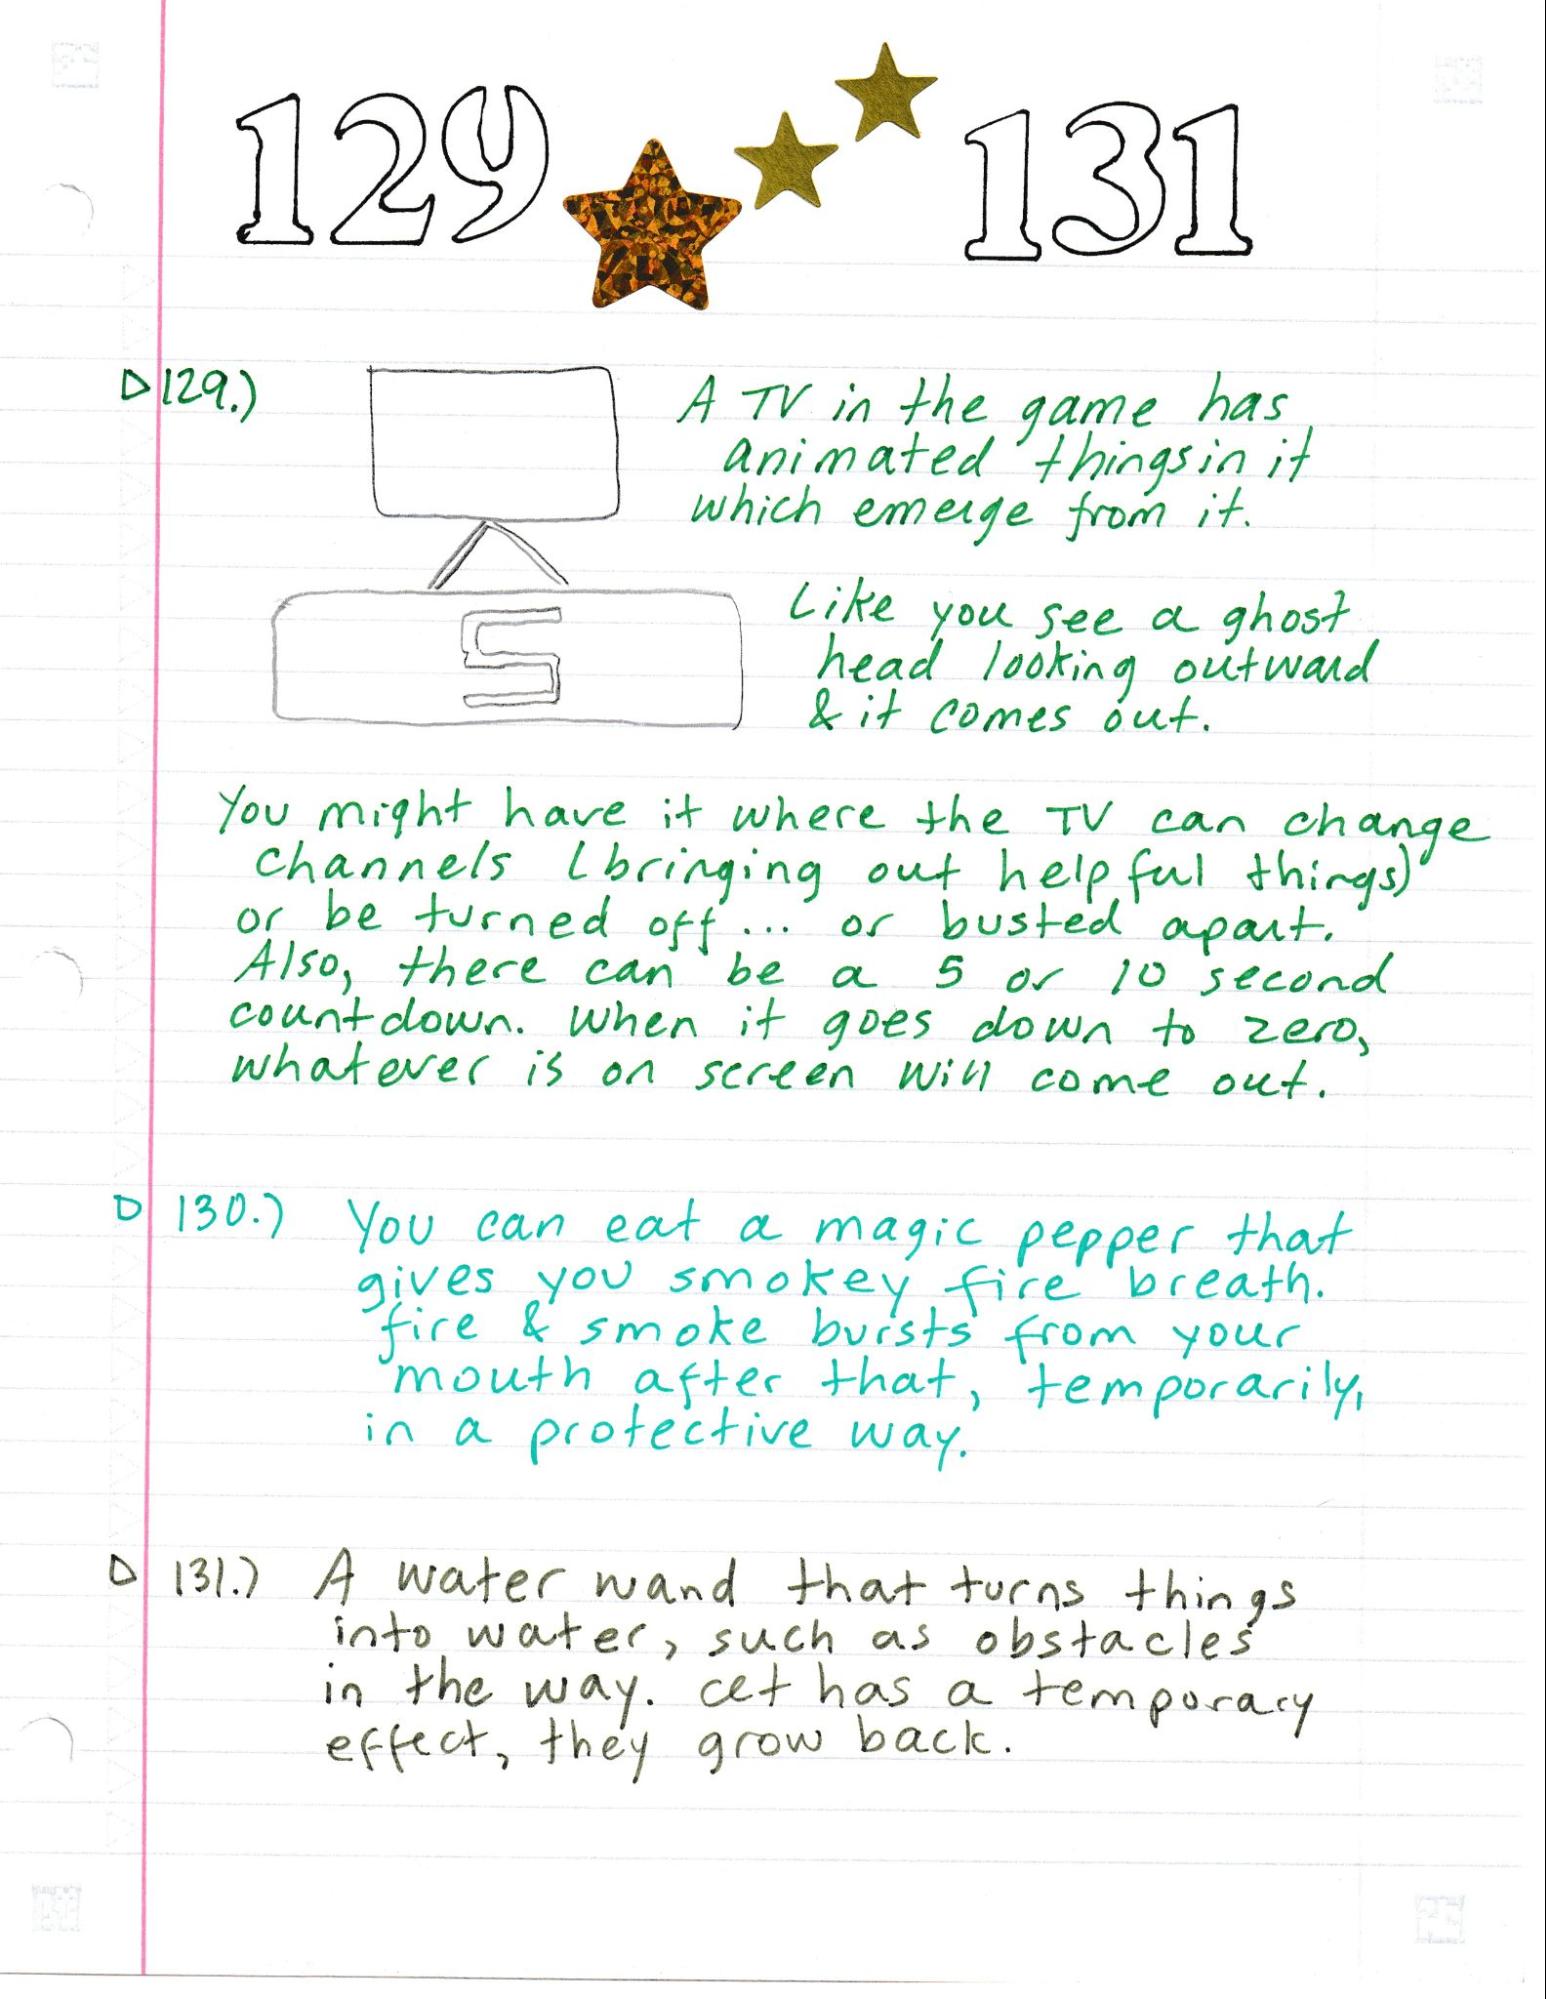 129 131
129.)
A TV in the game has
animated things in it
which emerge from it.
5
Like you see a ghost
head looking outward
& it comes out.
You might have it where the TV can change
channels (bringing out helpful things)
or be turned off... or busted apart.
Also, there can be a 5 or 10 second
countdown. When it goes down to zero,
whatever is on screen will come out.
130.) You can eat a magic pepper that
gives you smokey fire breath.
fire & smoke bursts from your
mouth after that, temporarily,
in a protective way.
131.) A water wand that turns things
into water, such as obstacles
in the way. has a temporary
effect, they grow back.